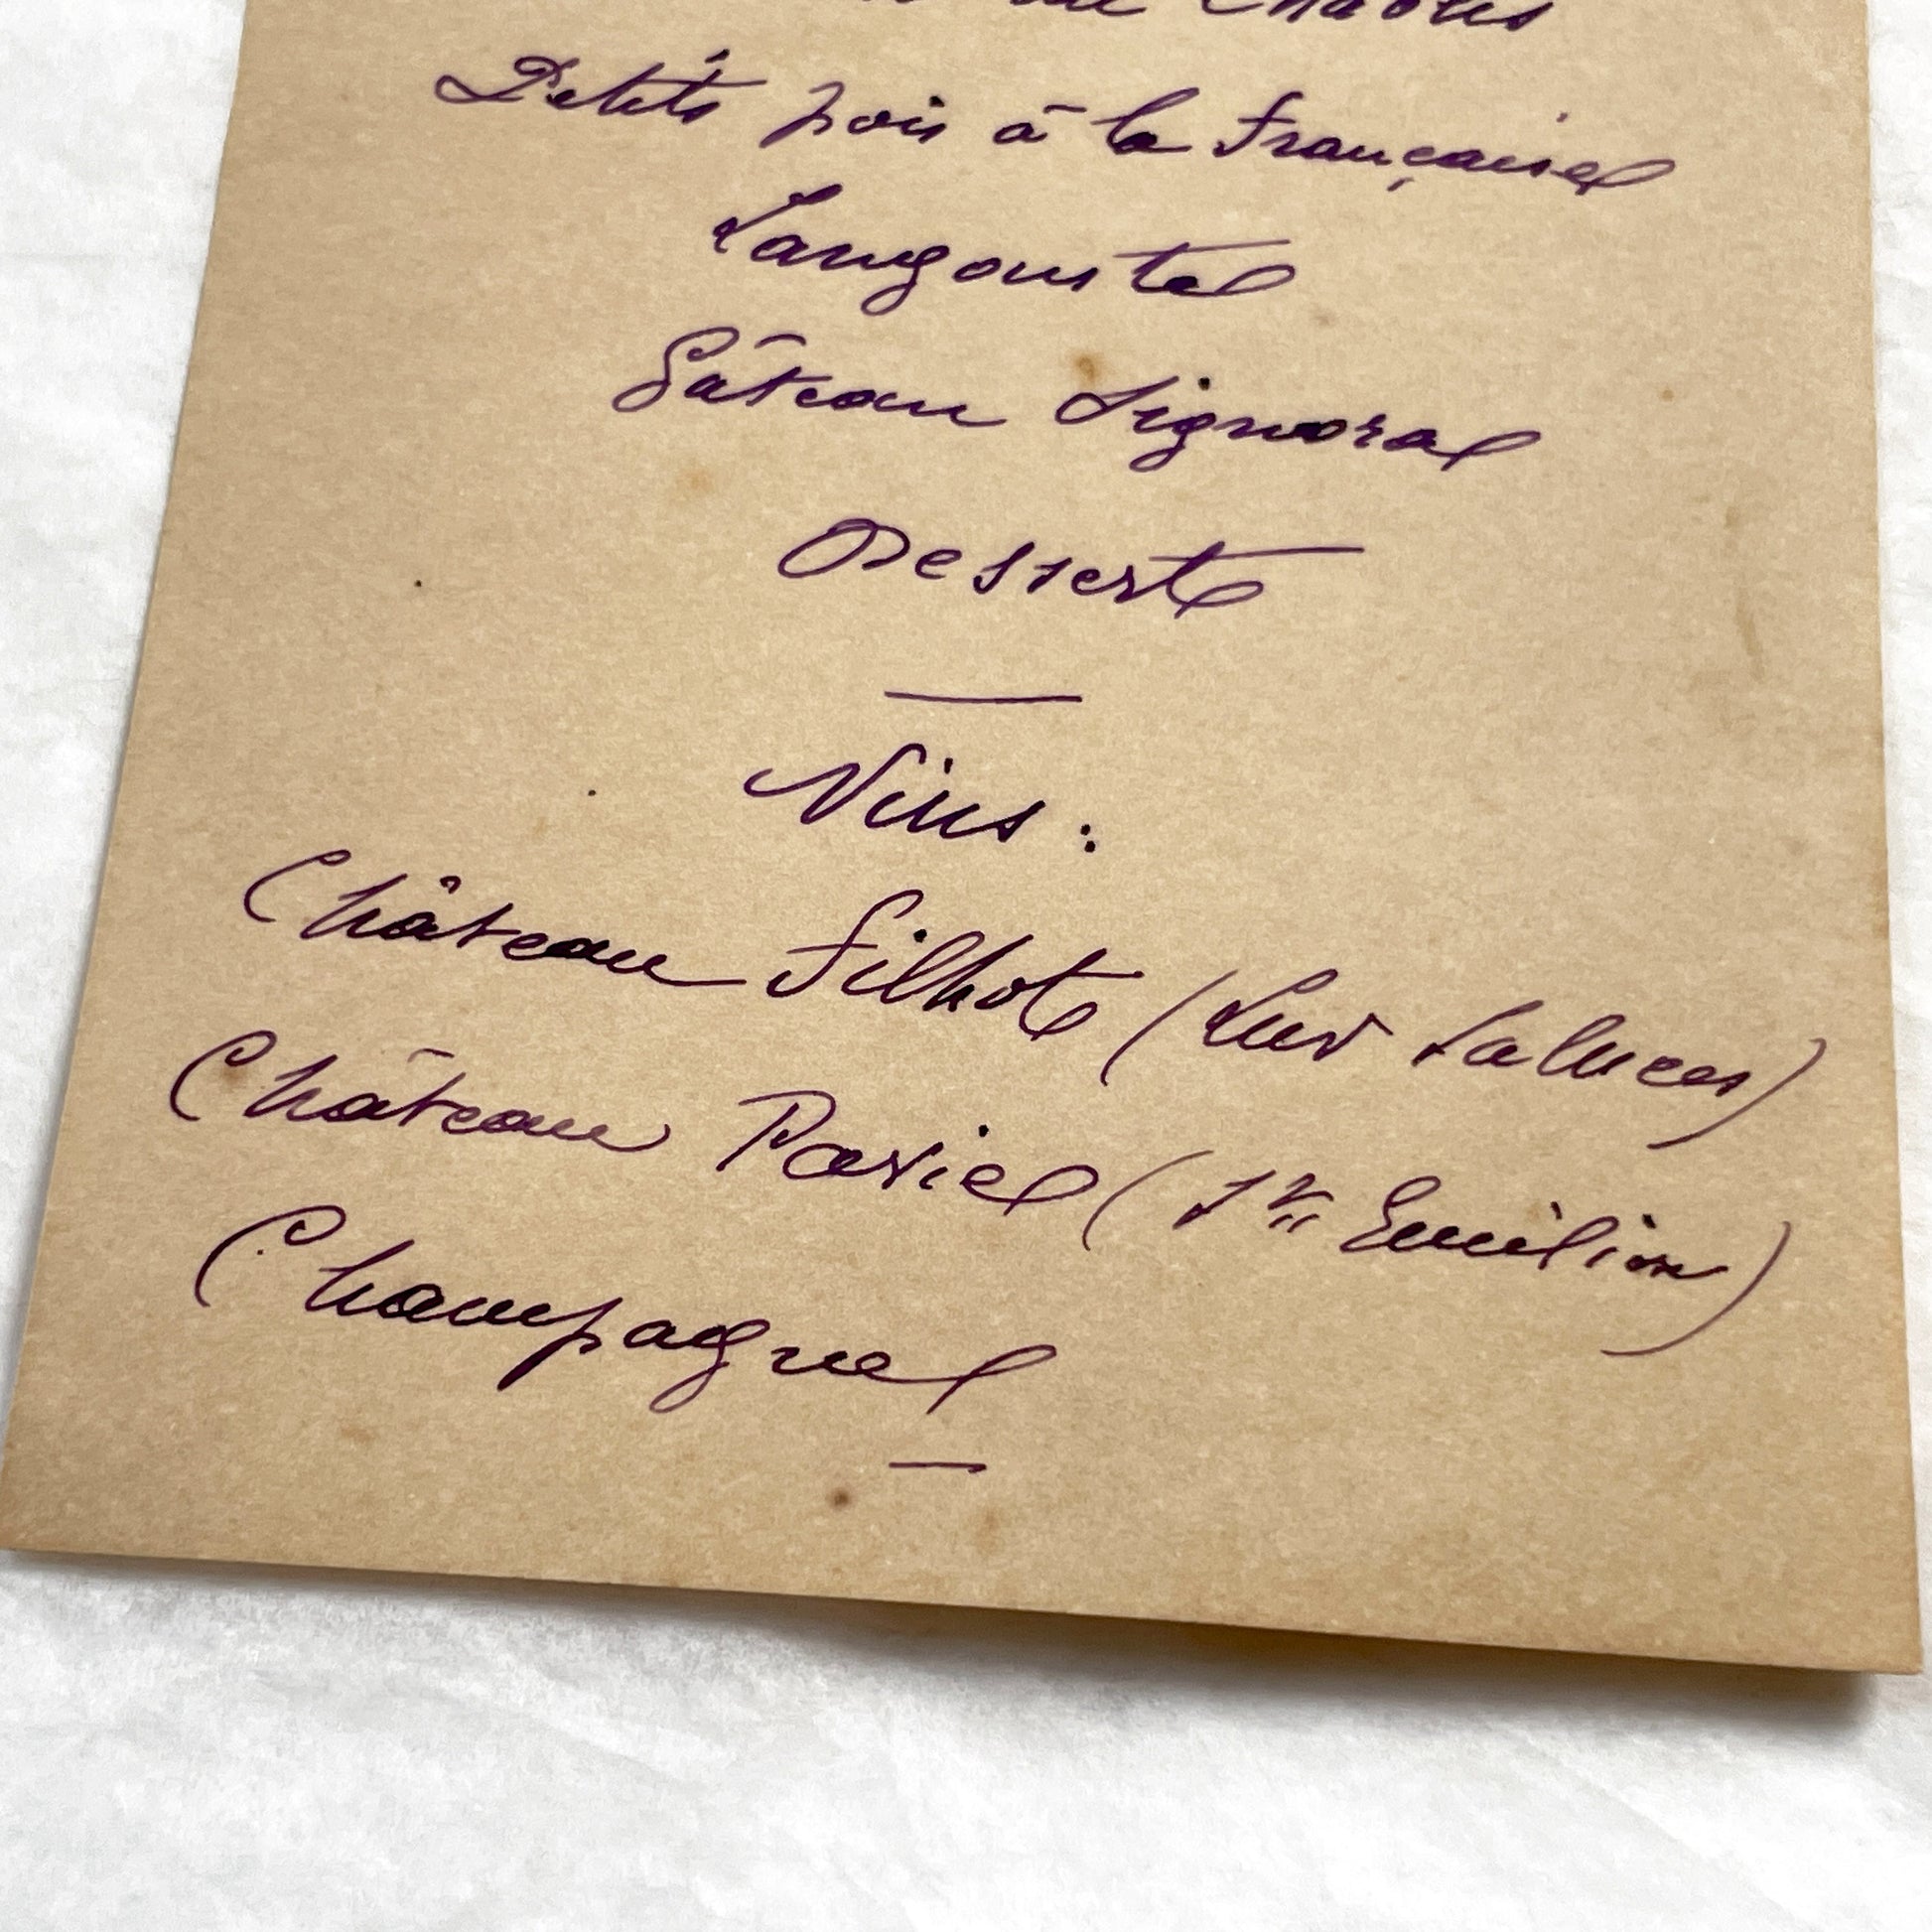 au Chablis
Petits pois à la française
Langouste
Gâteau Signora
Desserts
Vins :
Château Filhot (Lur Saluces)
Château Pavie (St Emilion)
Champagne